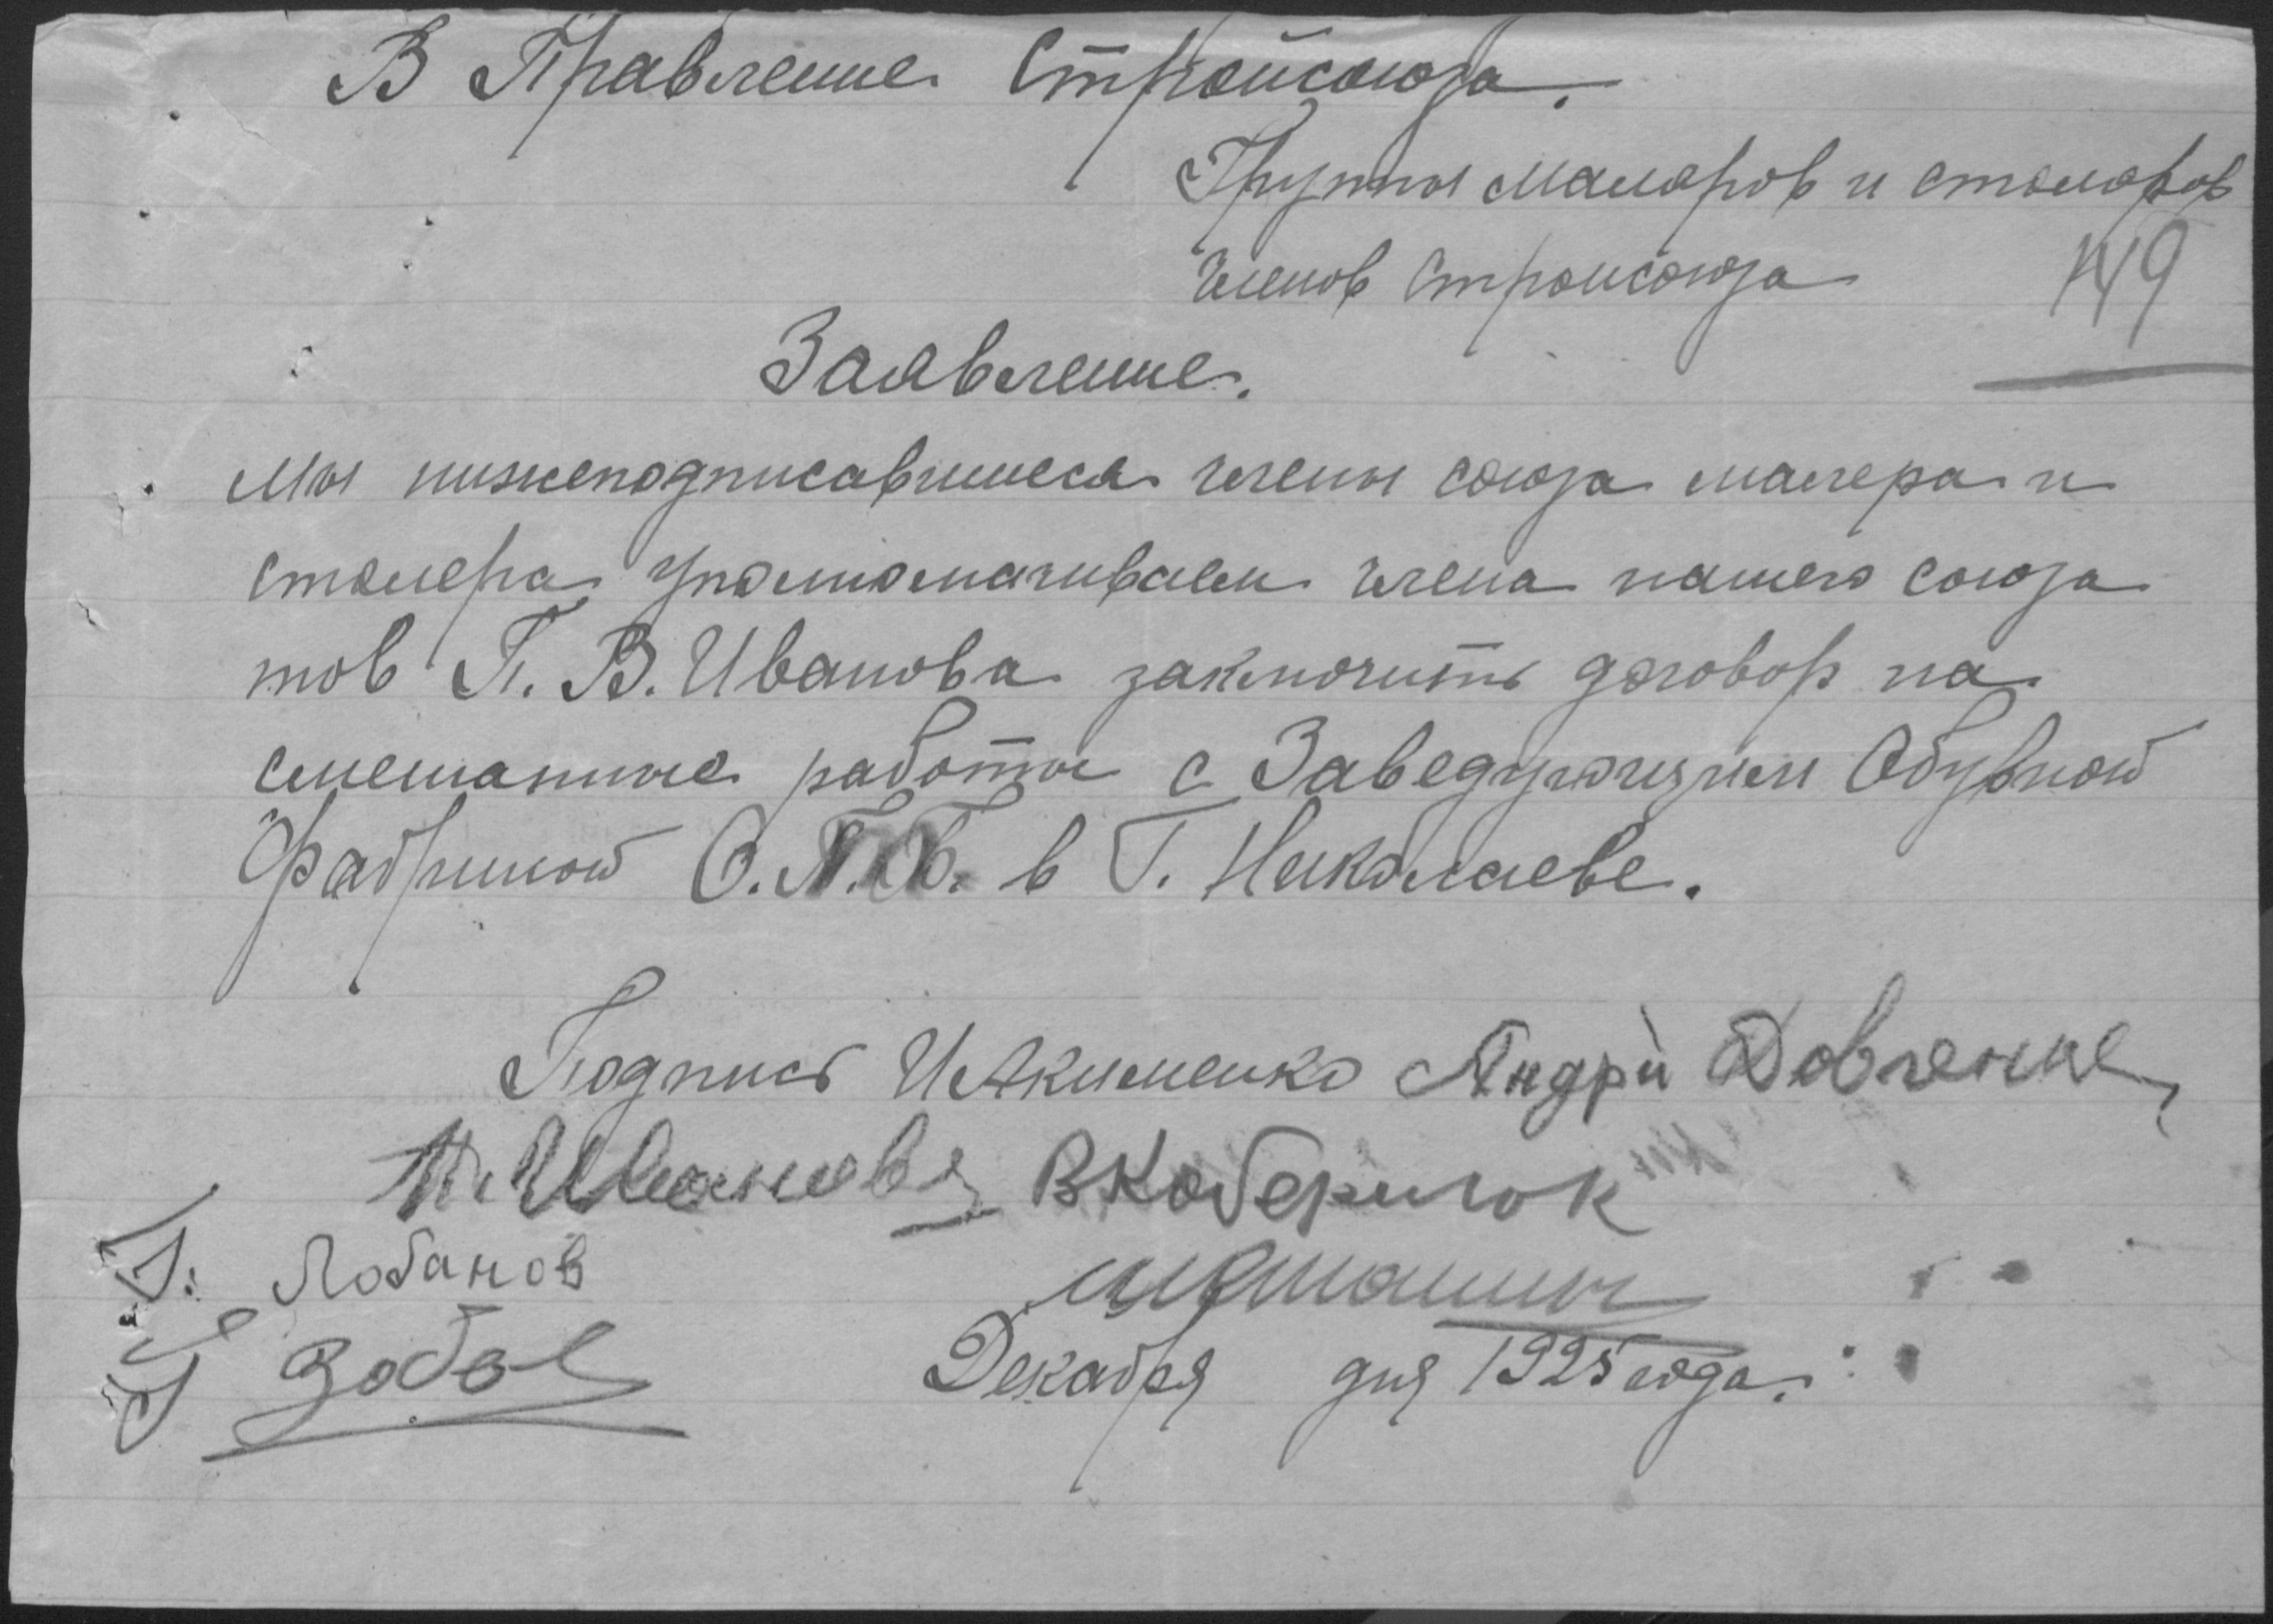 В Правление Стройсоюза.
Группы маляров и столяров
Членов Стройсоюза
149
Заявление.
Мы нижеподписавшиеся члены союза малера и
столера уполномачиваем члена нашего союза
тов П. В. Иванова заключить договор на
смешанные работы с Заведующим Обувной
Фабрикой в Г. Николаеве.
Подпись И Акименко Андрій Довченке
П. Иванов В Коберилок
Лобанов
Декабря дня 1925 года.